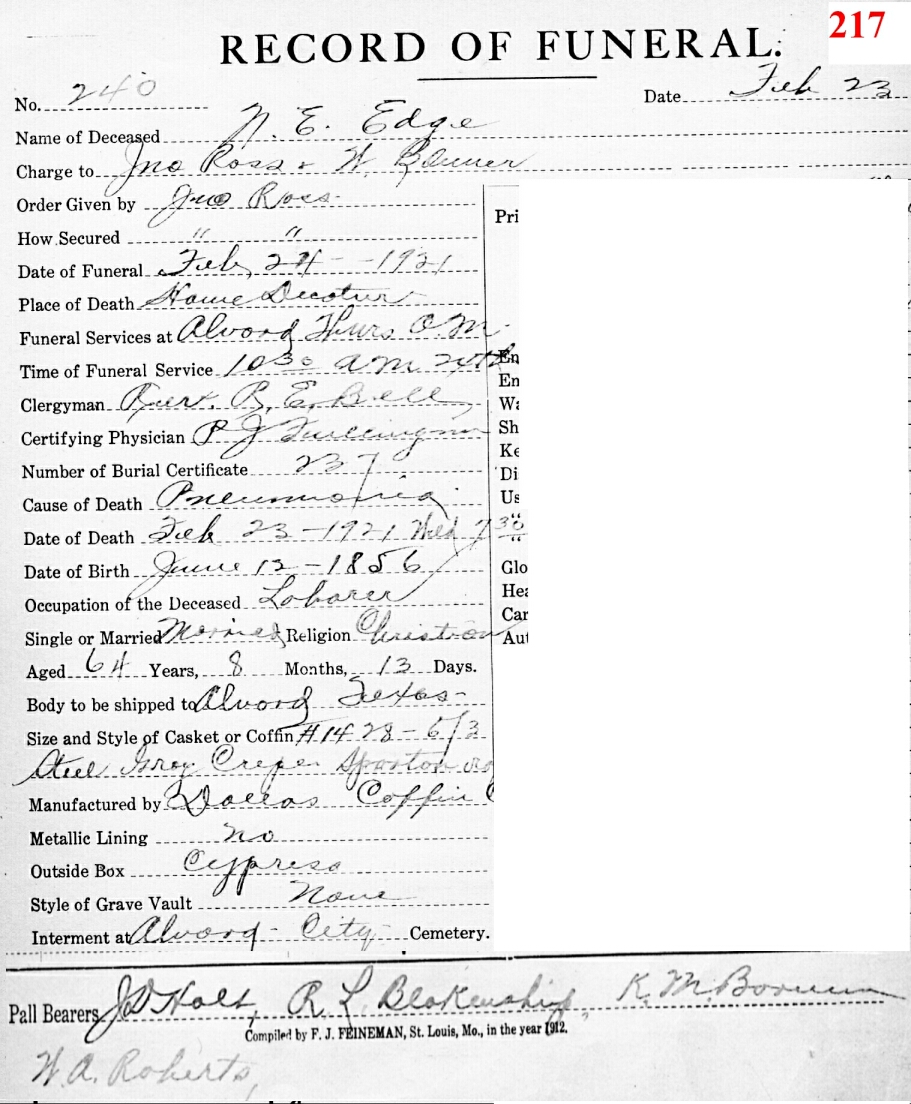 217
RECORD OF FUNERAL.
No. 240 Date Feb 23
Name of Deceased N. E. Edge
Charge to Jno Ross & W.
Order Given by Jno Ross
How Secured " "
Pri
Date of Funeral Feb, 24 - 1921
Place of Death Home Decatur
Funeral Services at Alvord Thurs
Time of Funeral Service 10 30 am 24th
Em
En
Clergyman R. E. Bell
Wa
Certifying Physician P J
Sh
Ke
Number of Burial Certificate 237
Di
Cause of Death Pneumonia
Us
Date of Death Feb 23 - 1921 Wed 7 30
"
"
Date of Birth June 12 - 1856
Glo
Occupation of the Deceased Laborer
Hea
Car
Single or Married Married Religion Christian
Aut
Aged 64 Years, 8 Months, 13 Days.
Body to be shipped to Alvord Texas -
Size and Style of Casket or Coffin #14 28 - 6/3
Steel Grey Crepe
Manufactured by Dallas Coffin C
Metallic Lining no
Outside Box Cypress
Style of Grave Vault None
Interment at Alvord - City Cemetery.
Pall Bearers J D Holt, R L Blakenship, K. M.
Compiled by F. J. FEINEMAN, St. Louis, Mo., in the year 1912.
W. A. Roberts,